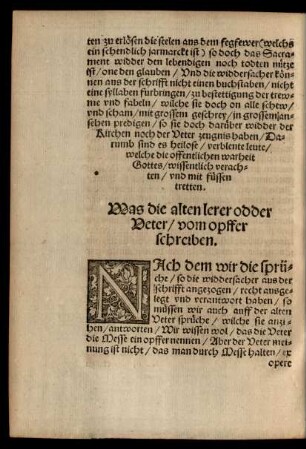 ten zu erlösen die seelen aus dem fegfewer (welchs
ein schendlich jarmarckt ist) so doch das Sacra-
ment widder den lebendigen noch todten nütze
ist / one den glauben / Vnd die widdersacher kön-
nen aus der schrifft nicht einen buchstaben / nicht
eine syllaben furbringen / zu bestettigung der trew-
me vnd fabeln / wilche sie doch on alle schew /
vnd scham / mit grossem geschrey / in grossem jan-
schen predigen / so sie doch darüber widder der
Kirchen noch der Veter zeugnis haben / Da-
rumb sind es heilose / verblente leute /
welche die offentlichen warheit
Gottes / wissentlich verach-
ten / vnd mit füssen
tretten.
Was die alten lerer odder
Veter / vom opffer
schreiben.
NAch dem wir die sprü-
che / so die widdersacher aus der
schrifft angezogen / recht ausge-
legt vnd verantwort haben / so
müssen wir auch auff der alten
Veter sprüche / wilche sie anzi-
hen / antworten / Wir wissen wol / das die Veter
die Messe ein opffer nennen / Aber der Veter mei-
nung ist nicht / das man durch Messe halten / ex
opere